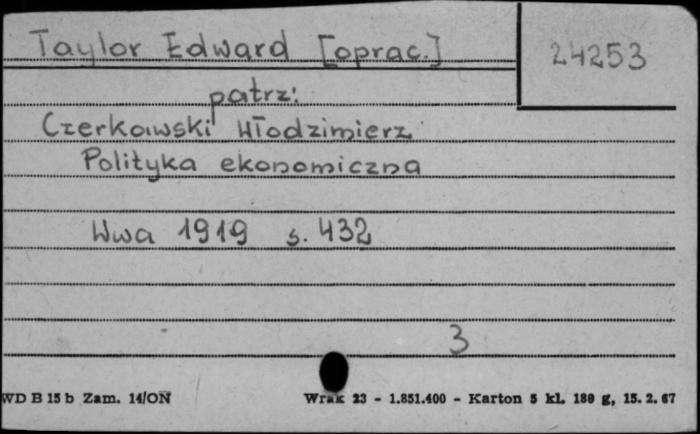 Taylor Edward [oprac.]
24253
patrz:
Czerkawski Włodzimierz
Polityka ekonomiczna
Wwa 1919 s. 432
3
WD B 15 b Zam. 14/ON Wrak 23 - 1.851.400 - Karton 5 kl. 180 g, 15. 2. 67